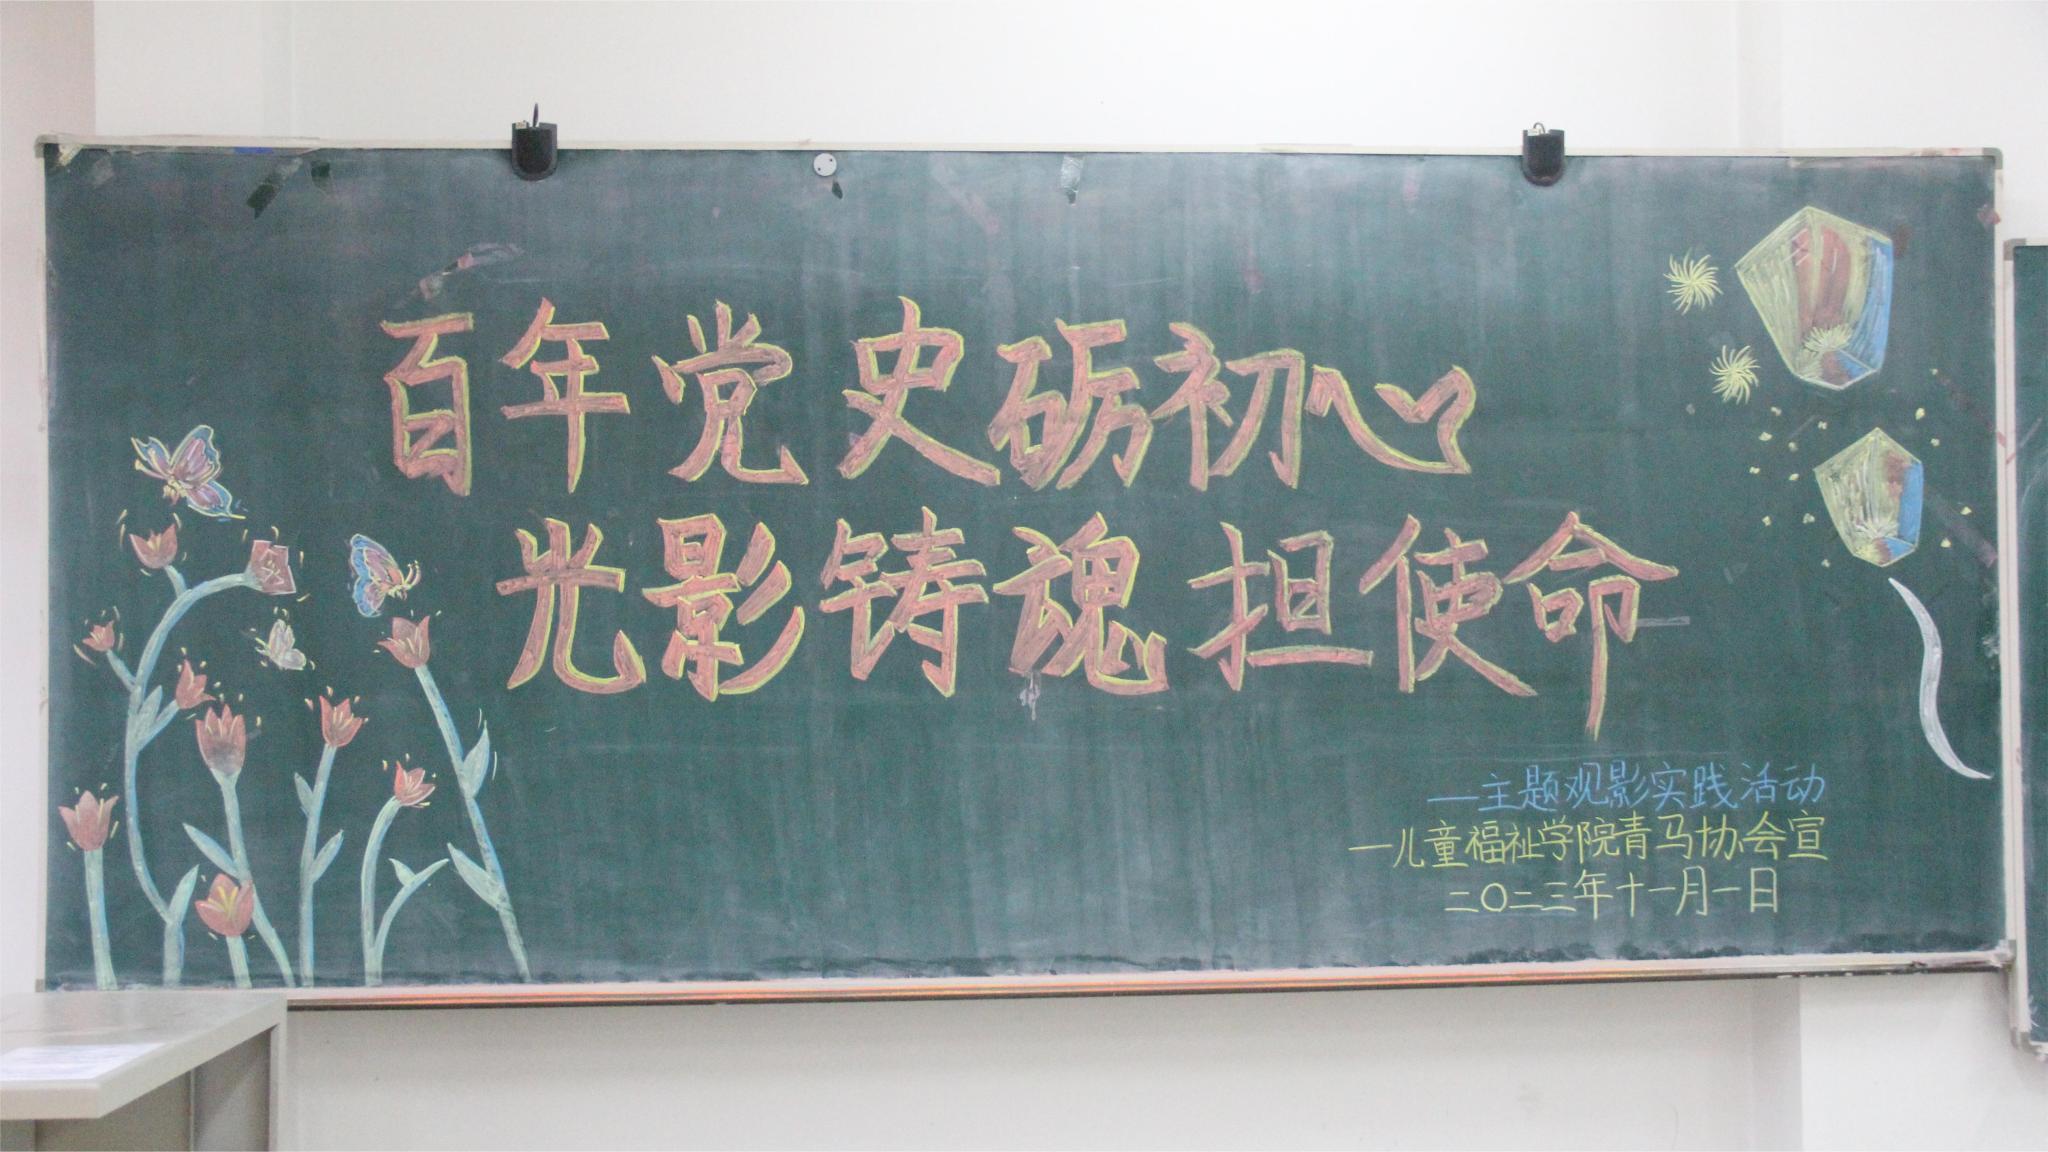 百年党史砺初心
光影铸魂担使命
—主题观影实践活动
—儿童福祉学院青马协会宣
二〇二三年十一月一日